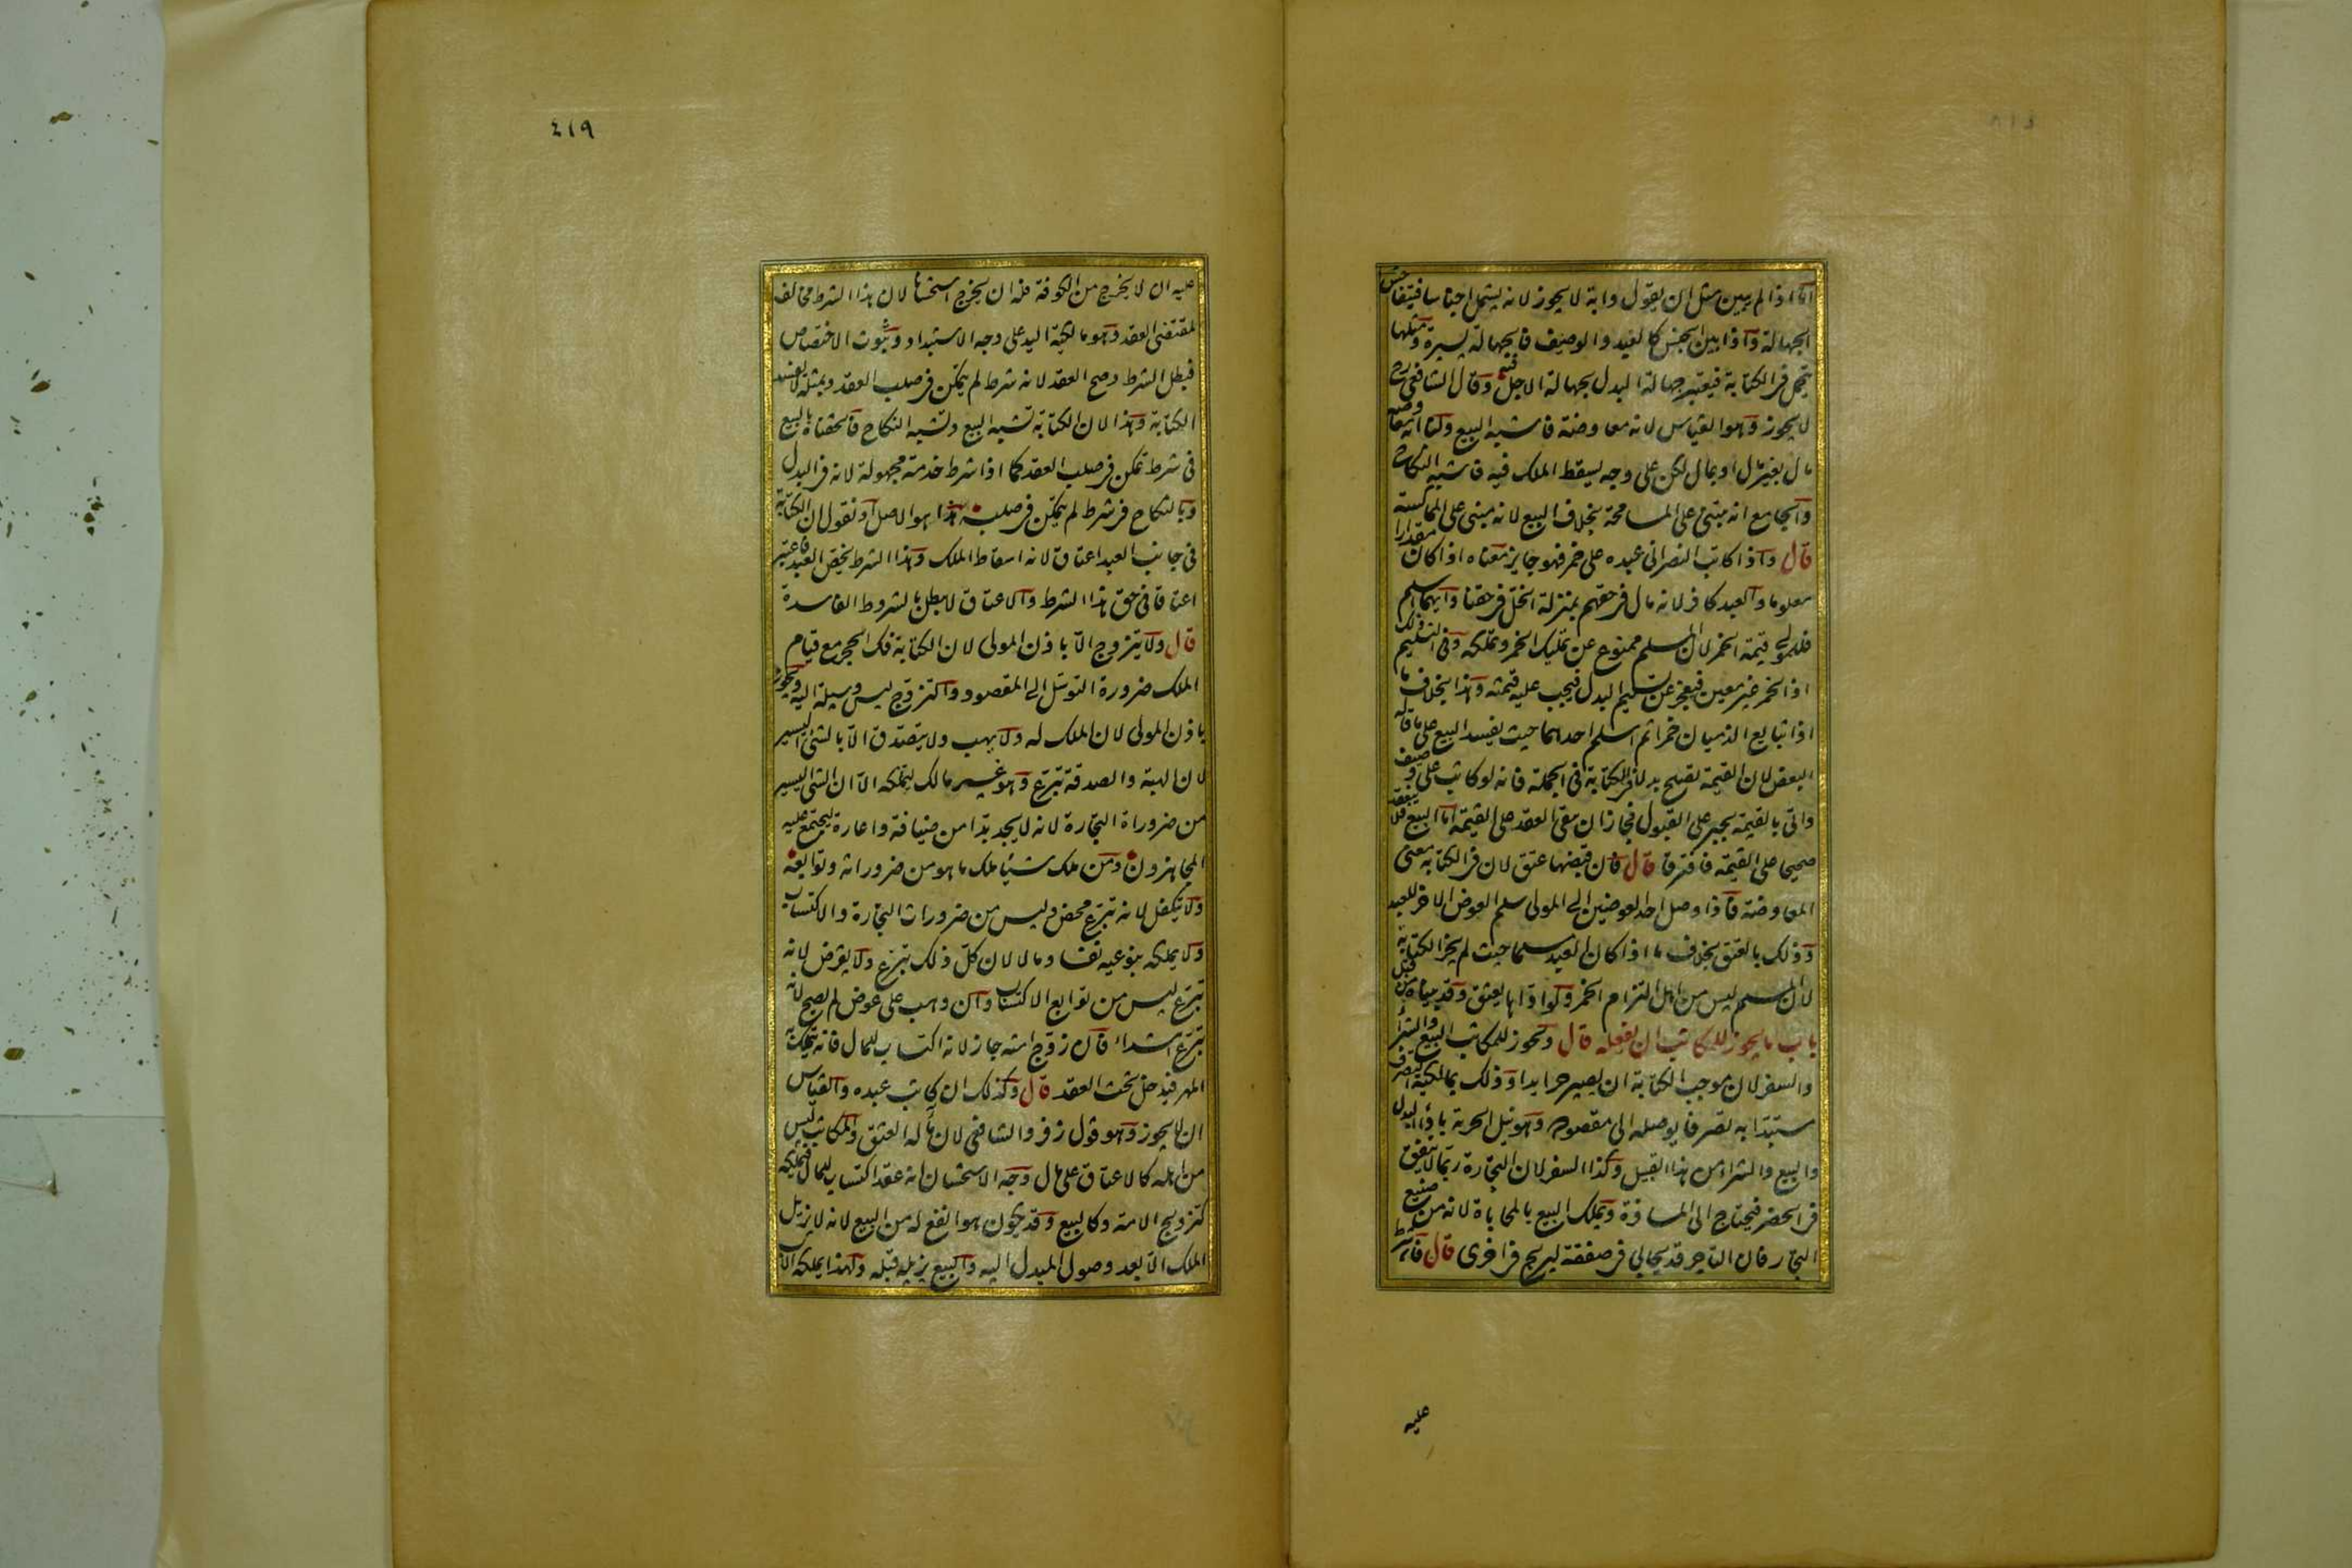 اما اذا لم يبين مثل ان يقول دابة لا يجوز لانه يشمل اجناسا فيتفاحش
الجهالة واذا بين الجنس كالعبد والوصيف فالجهالة يسيرة ومثلها
يتحمل فى الكتابة فيعتبر جهالة البدل بجهالة الاجل فيه وقال الشافعى رح
لا يجوز وهو القياس لانه معاوضة فاشبه البيع ولنا انه معاوضة
مال بغير مال او بمال لكن على وجه يسقط الملك فيه فاشبه النكاح
والجامع انه مبنى على المسامحة بخلاف البيع لانه مبنى على المماكسة
قال واذا كاتب النصرانى عبده على خمر فهو جايز معناه اذا كان مقدارا
معلوما والعبد كافر لانه مال فى حقهم بمنزلة الخل فى حقنا وايهما اسلم
فللمولى قيمة الخمر لان المسلم ممنوع عن تمليك الخمر وتملكه وفى التسليم ذلك
اذ الخمر غير معين فيعجز عن تسليم البدل فيجب عليه قيمته وهذا بخلاف ما
اذا تبايع الذميان خمرا ثم اسلم احدهما حيث يفسد البيع على ما قاله
البعض لان القيمة تصلح بدلا فى الكتابة فى الجملة فانه لو كاتب على وصيف
واتى بالقيمة يجبر على القبول فجاز ان يبقى العقد على القيمة اما البيع فلا ينعقد
صحيحا على القيمة فافترقا قال فان قبضها عتق لان فى الكتابة معنى
المعاوضة فاذا وصل احد العوضين الى المولى سلم العوض الاخر للعبد
وذلك بالعتق بخلاف ما اذا كان العبد مسلما حيث لم يجز الكتابة
لان المسلم ليس من اهل التزام الخمر ولو اداها يعتق وقد بيناه من قبل
باب ما يجوز للمكاتب ان يفعله قال ويجوز للمكاتب البيع والشراء
والسفر لان موجب الكتابة ان يصير حرا يدا وذلك بمالكية التصرف
مستبدا به تصرفا يوصله الى مقصوده وهو نيل الحرية باداء البدل
والبيع والشراء من هذا القبيل وكذا السفر لان التجارة ربما لا يتفق
فى الحضر فيحتاج الى المسافرة ويملك البيع بالمحاباة لانه من صنيع
التجار فان التاجر قد يحابى فى صفقة ليربح فى اخرى قال فان شرط
عليه
٤١٩
عليه ان لا يخرج من الكوفة فله ان يخرج استحسانا لان هذا الشرط مخالف
لمقتضى العقد وهو مالكية اليد على وجه الاستبداد وثبوت الاختصاص
فبطل الشرط وصح العقد لانه شرط لم يتمكن فى صلب العقد وبمثله لا يفسد
الكتابة وهذا لان الكتابة تشبه البيع وتشبه النكاح فالحقناه بالبيع
فى شرط تمكن فى صلب العقد كما اذا شرط خدمة مجهولة لانه فى البدل
وبالنكاح فى شرط لم يتمكن فى صلبه هذا هو الاصل او نقول ان الكتابة
فى جانب العبد اعتاق لانه اسقاط الملك وهذا الشرط يخص العبد فاعتبر
اعتاقا فى حق هذا الشرط والاعتاق لا يبطل بالشروط الفاسدة
قال ولا يتزوج الا باذن المولى لان الكتابة فك الحجر مع قيام
الملك ضرورة التوسل الى المقصود والتزوج ليس وسيلة اليه ويجوز
باذن المولى لان الملك له ولا يهب ولا يتصدق الا بالشئ اليسير
لان الهبة والصدقة تبرع وهو غير مالك ليملكه الا ان الشئ اليسير
من ضروراة التجارة لانه لا يجد بدا من ضيافة واعارة ليجتمع عليه
المجاهزون ومن ملك شيئا ملك ما هو من ضروراته وتوابعه
ولا يتكفل لانه تبرع محض وليس من ضرورات التجارة والاكتساب
ولا يملكه بنوعيه نفسا ومالا لان كل ذلك تبرع ولا يقرض لانه
تبرع ليس من توابع الاكتساب وان وهب على عوض لم يصح لانه
تبرع ابتداء فان زوج امته جاز لانه اكتساب للمال فانه يتملك به
المهر فيدخل تحت العقد قال وكذلك ان كاتب عبده والقياس
ان لا يجوز وهو قول زفر والشافعى لان مآله العتق والمكاتب ليس
من اهله كالاعتاق على مال وجه الاستحسان انه عقد اكتساب للمال فيملكه
كتزويج الامة وكالبيع وقد يكون هو انفع له من البيع لانه لا يزيل
الملك الا بعد وصول البدل اليه والبيع يزيله قبله ولهذا يملكه الاب